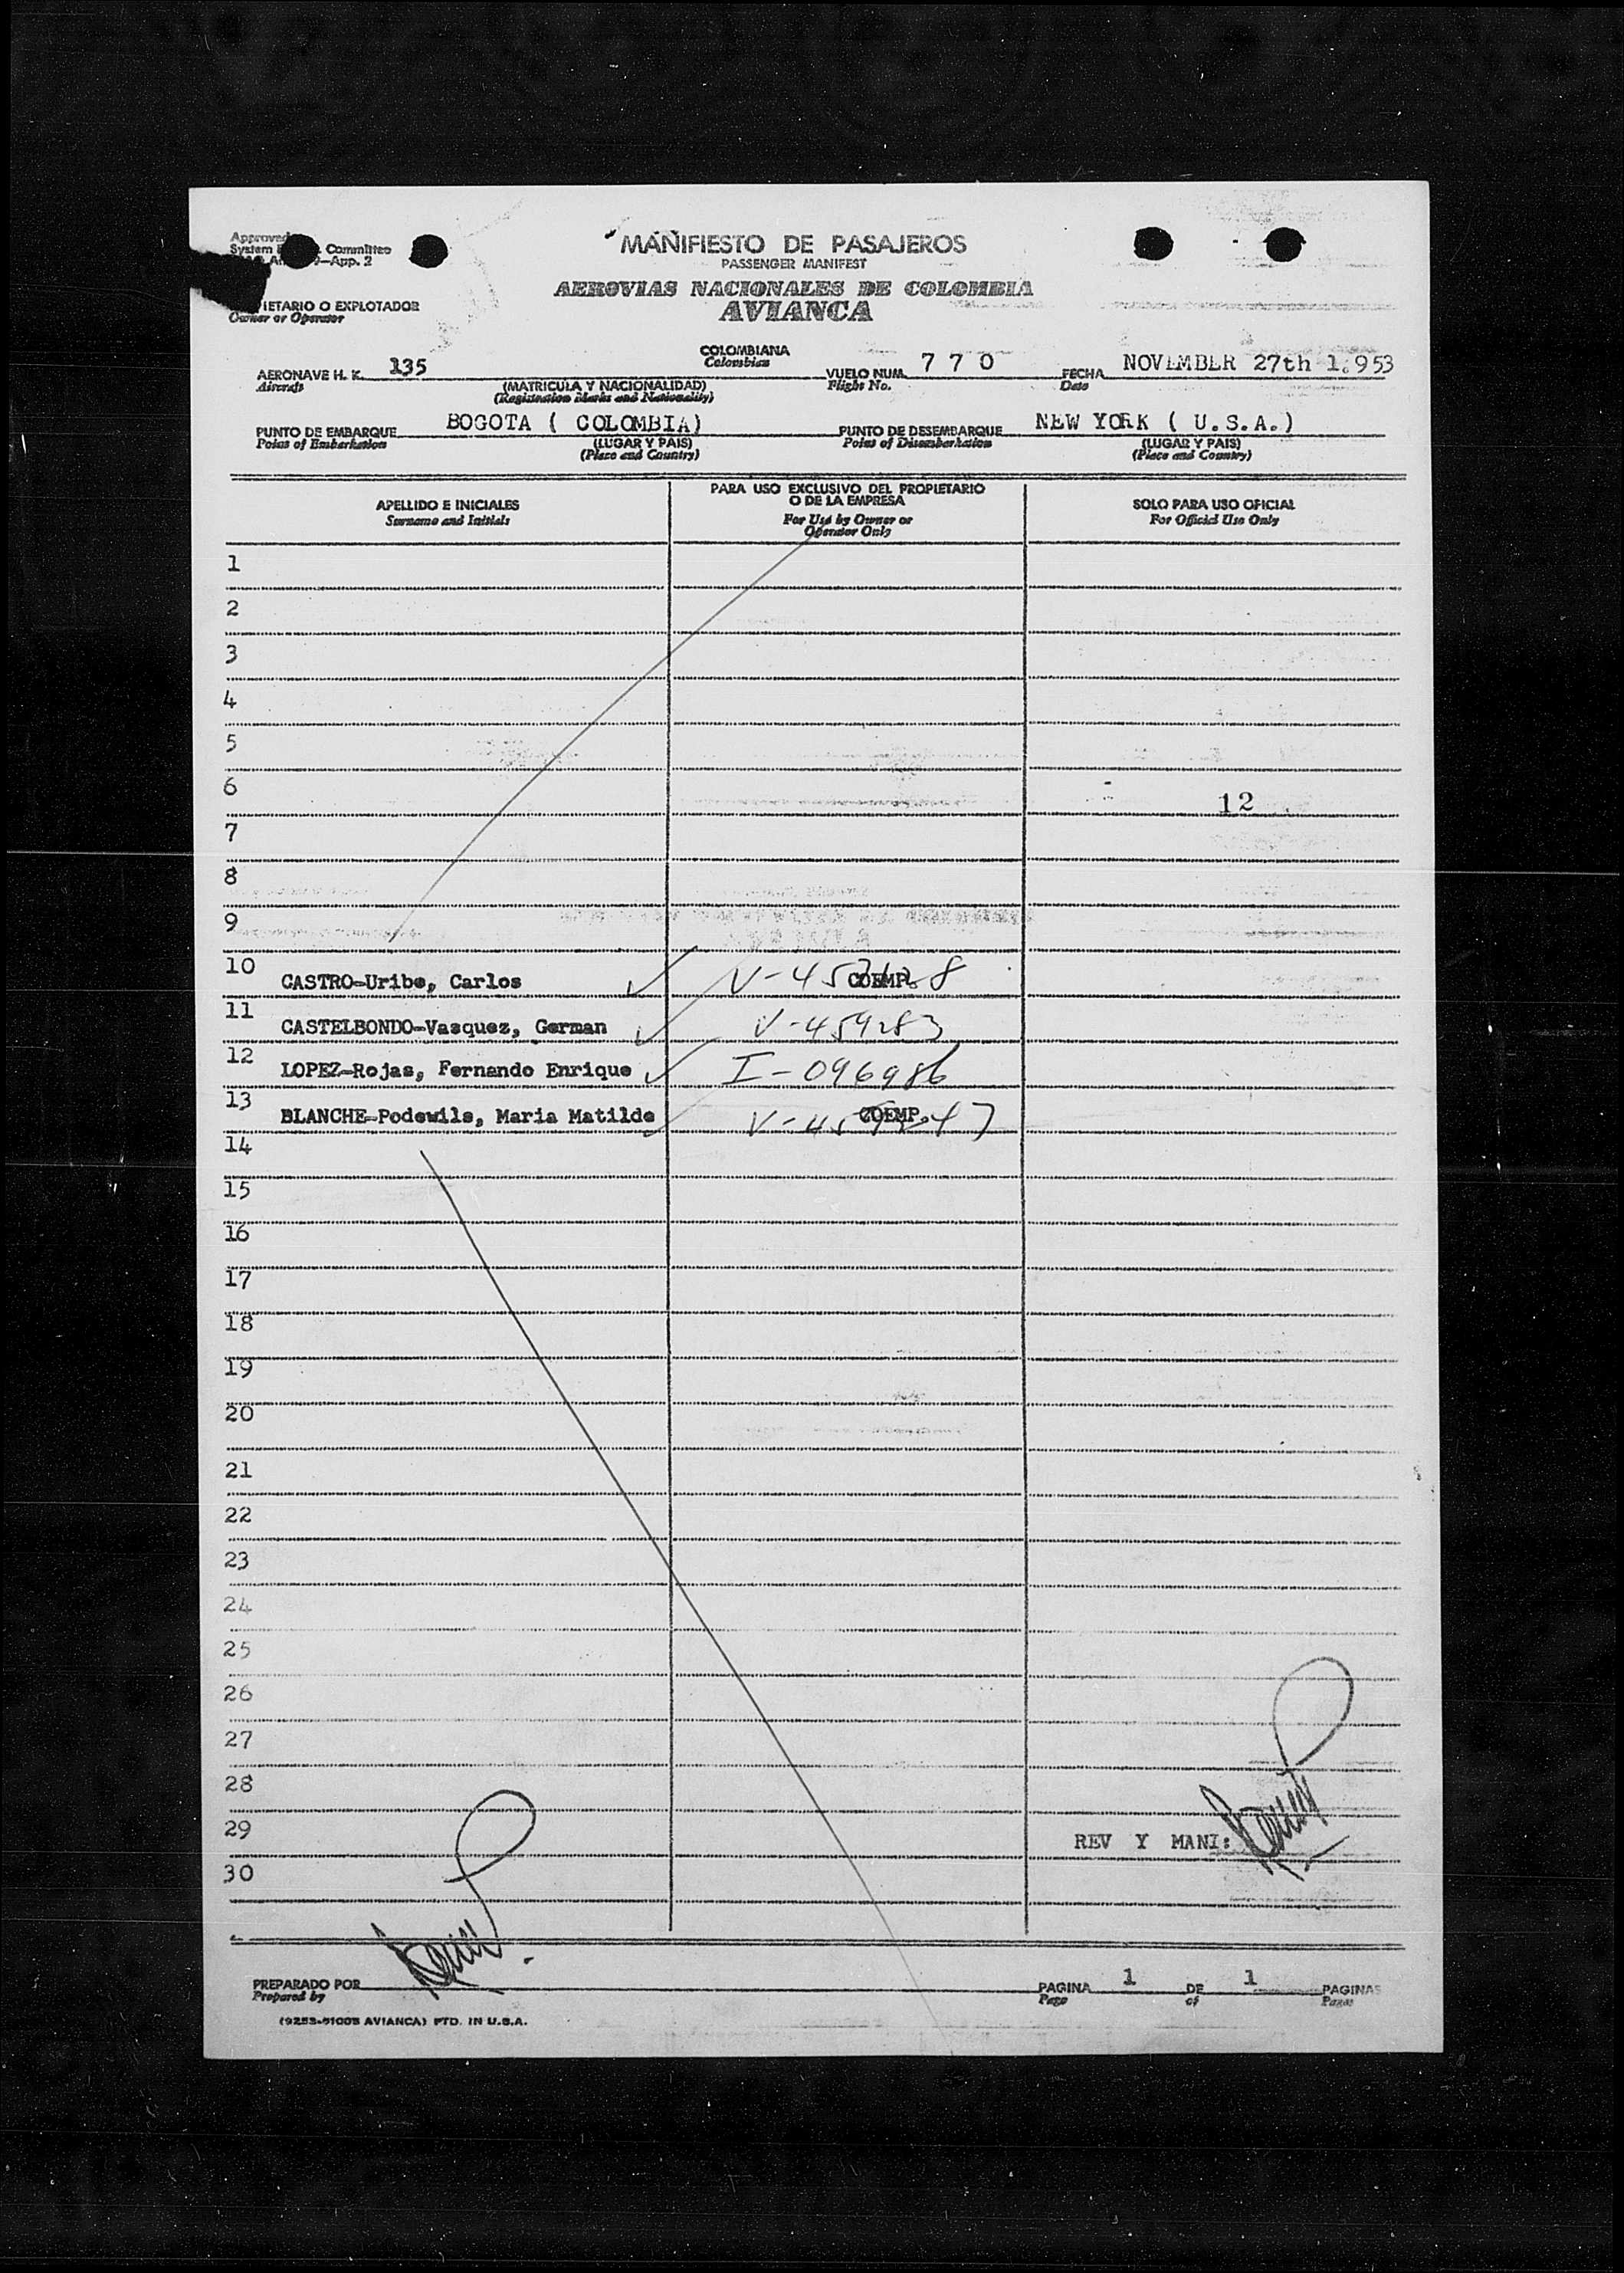 Approved
System Committee
App. 2
MANIFIESTO DE PASAJEROS
PASSENGER MANIFEST
AEROVIAS NACIONALES DE COLOMBIA
AVIANCA
IETARIO O EXPLOTADOR
Owner or Operator
COLOMBIANA
Colombian
AERONAVE H. K. 135 VUELO NUM. 7 7 0 FECHA NOVEMBER 27th 1.953
Aircraft (MATRICULA Y NACIONALIDAD) Flight No. Date
(Registration Marks and Nationality)
PUNTO DE EMBARQUE BOGOTA ( COLOMBIA) PUNTO DE DESEMBARQUE NEW YORK ( U.S.A.)
Point of Embarkation (LUGAR Y PAIS) Point of Disembarkation (LUGAR Y PAIS)
(Place and Country) (Place and Country)
APELLIDO E INICIALES
Surname and Initials
PARA USO EXCLUSIVO DEL PROPIETARIO
O DE LA EMPRESA
For Use by Owner or
Operator Only
SOLO PARA USO OFICIAL
For Official Use Only
1
2
3
4
5
6 12
7
8
9
10 CASTRO-Uribe, Carlos COEMP.
11 CASTELBONDO-Vasquez, German V-459283
12 LOPEZ-Rojas, Fernando Enrique I-096986
13 BLANCHE-Podewils, Maria Matilde COEMP.
14
15
16
17
18
19
20
21
22
23
24
25
26
27
28
29 REV Y MANI:
30
PREPARADO POR PAGINA 1 DE 1 PAGINAS
Prepared by Page of Pages
(9253-51005 AVIANCA) PTD. IN U.S.A.